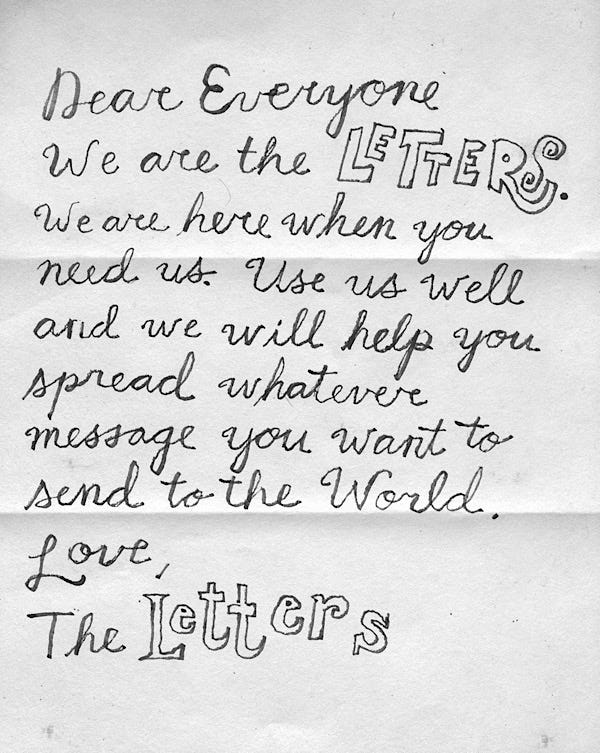 Dear Everyone
We are the LETTERS.
We are here when you
need us. Use us well
and we will help you
spread whatever
message you want to
send to the World.
Love,
The Letters